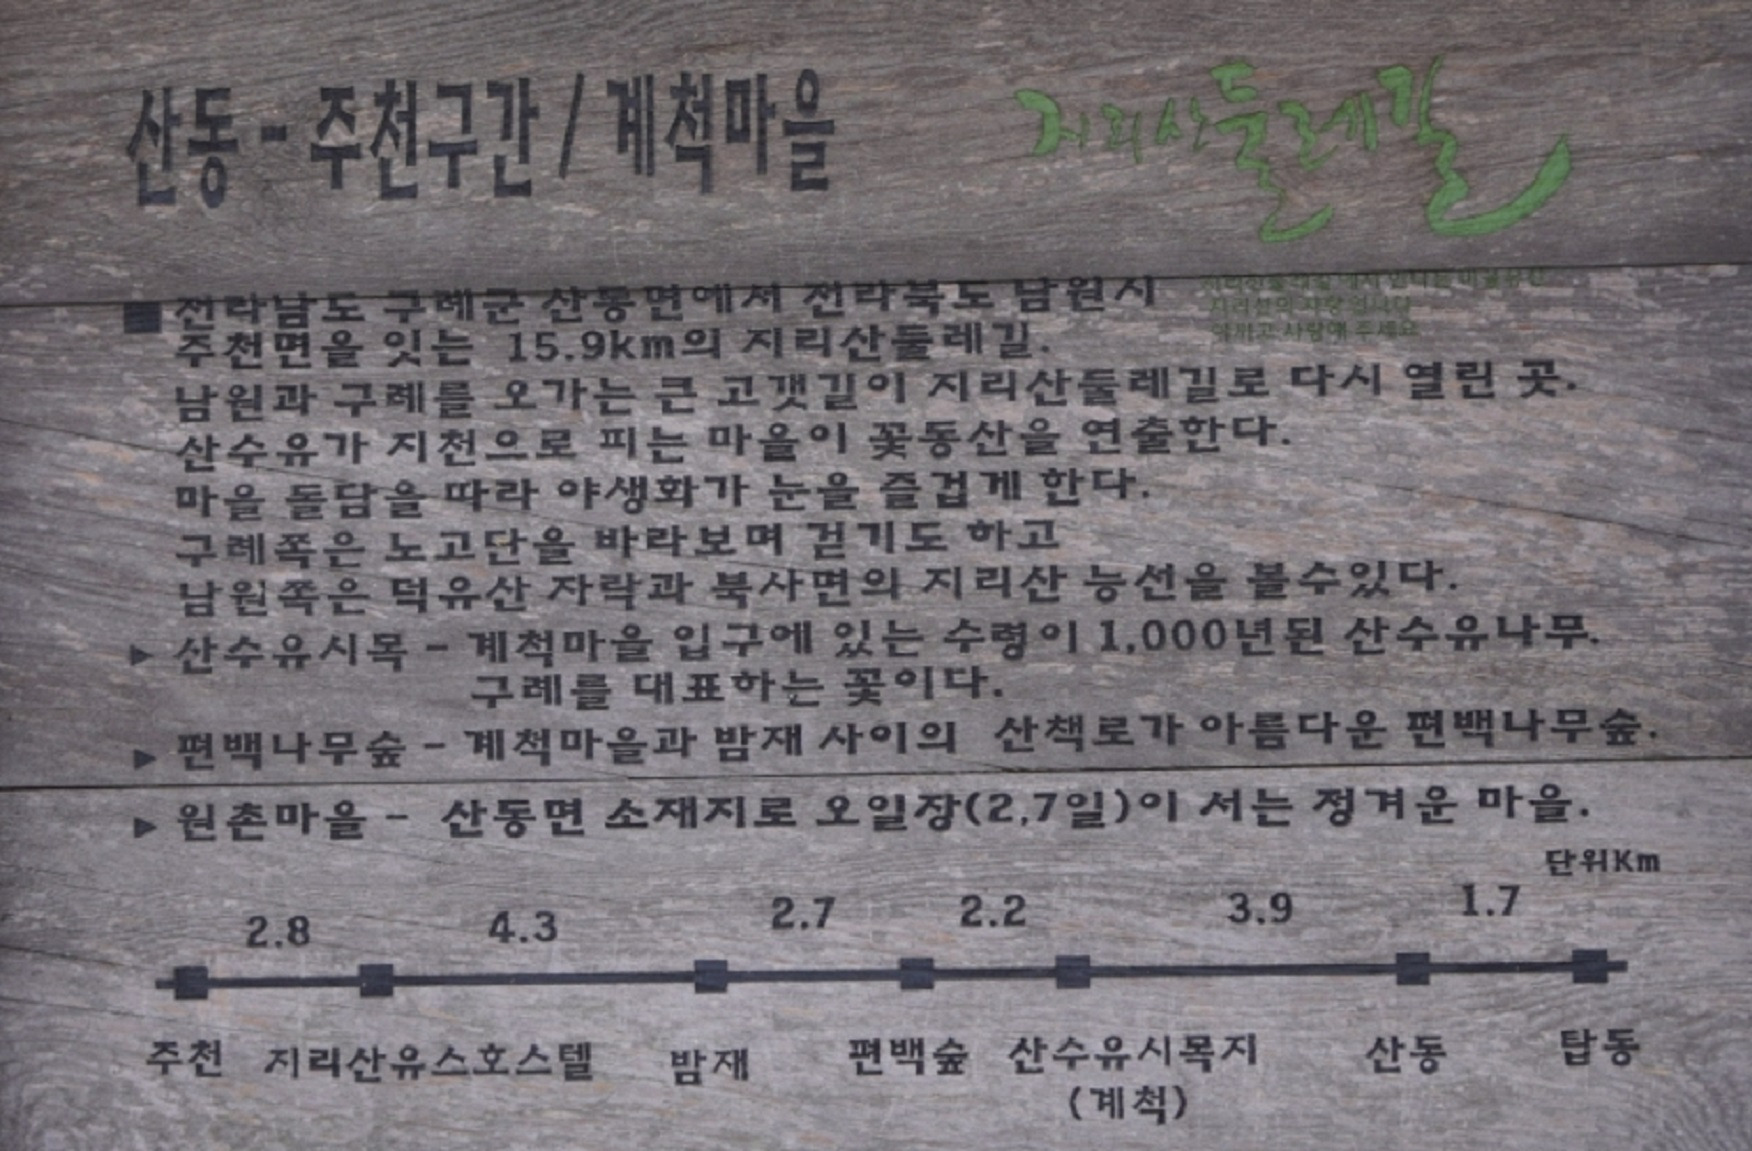 산동 - 주천구간 / 계척마을
지리산둘레길
■ 전라남도 구례군 산동면에서 전라북도 남원시
주천면을 잇는 15.9km의 지리산둘레길.
남원과 구례를 오가는 큰 고갯길이 지리산둘레길로 다시 열린 곳.
산수유가 지천으로 피는 마을이 꽃동산을 연출한다.
마을 돌담을 따라 야생화가 눈을 즐겁게 한다.
구례쪽은 노고단을 바라보며 걷기도 하고
남원쪽은 덕유산 자락과 북사면의 지리산 능선을 볼수있다.
▶ 산수유시목 - 계척마을 입구에 있는 수령이 1,000년된 산수유나무.
구례를 대표하는 꽃이다.
▶ 편백나무숲 - 계척마을과 밤재 사이의 산책로가 아름다운 편백나무숲.
▶ 원촌마을 - 산동면 소재지로 오일장(2,7일)이 서는 정겨운 마을.
단위Km
2.8 4.3 2.7 2.2 3.9 1.7
주천 지리산유스호스텔 밤재 편백숲 산수유시목지 산동 탑동
(계척)